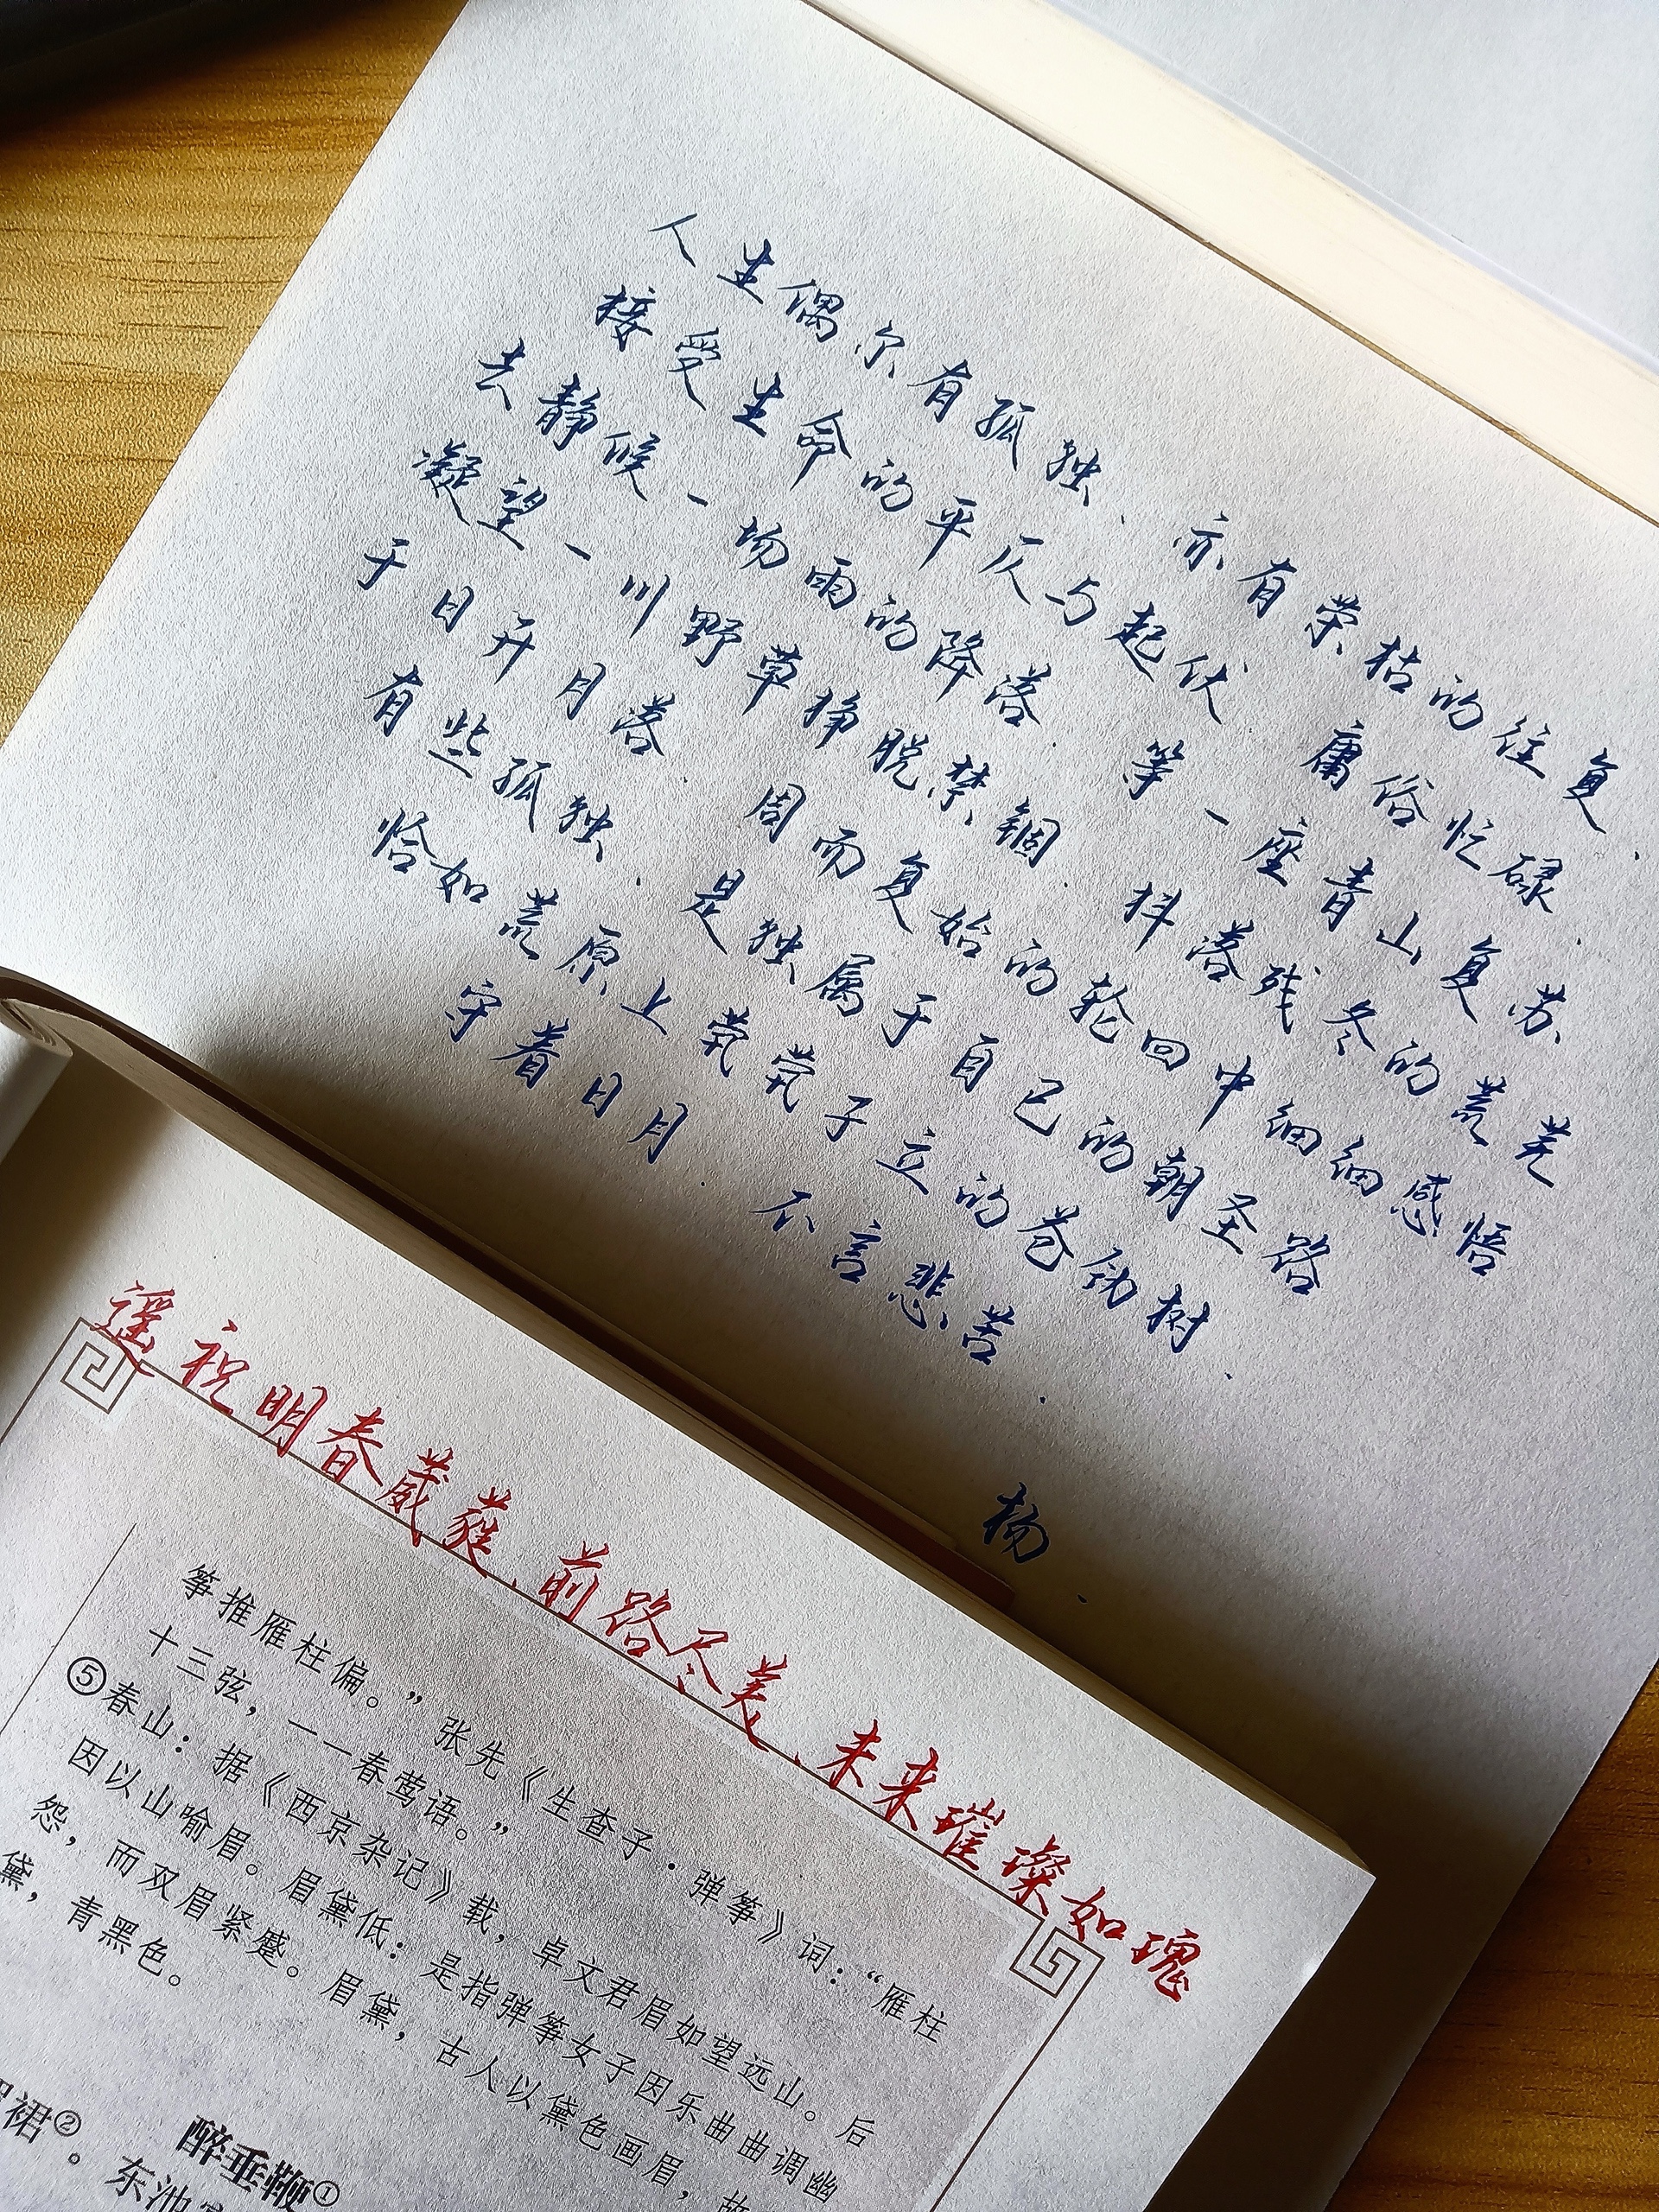 人生偶尔有孤独、亦有荣枯的往复、
接受生命的平仄与起伏 庸俗忙碌.
去静候一场雨的降落. 等一座青山复苏
凝望一川野草挣脱禁锢. 抖落残冬的荒芜
于日升月落. 周而复始的轮回中细细感悟
有些孤独. 是独属于自己的朝圣路
恰如荒原上茕茕孑立的苍劲树.
守着日月. 不言悲苦.
杨.
遥祝明春葳蕤、前路尽美、未来璀璨如瑰
筝推雁柱偏。”张先《生查子·弹筝》词：“雁柱
十三弦，一一春莺语。”
⑤春山：据《西京杂记》载，卓文君眉如望远山。后
因以山喻眉。眉黛低：是指弹筝女子因乐曲曲调幽
怨，而双眉紧蹙。眉黛，古人以黛色画眉，故
黛，青黑色。
醉垂鞭①
裙②。东池